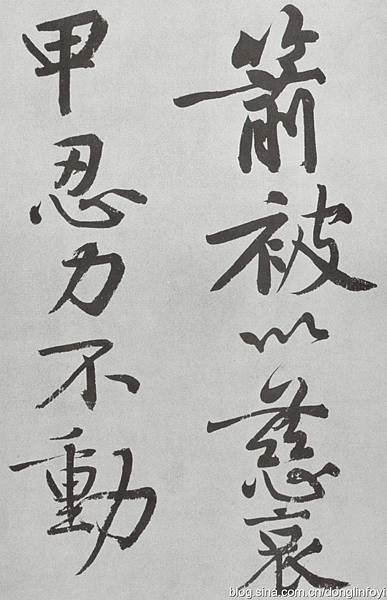 箭被以慈哀
甲忍力不動
blog.sina.com.cn/donglinfoyi